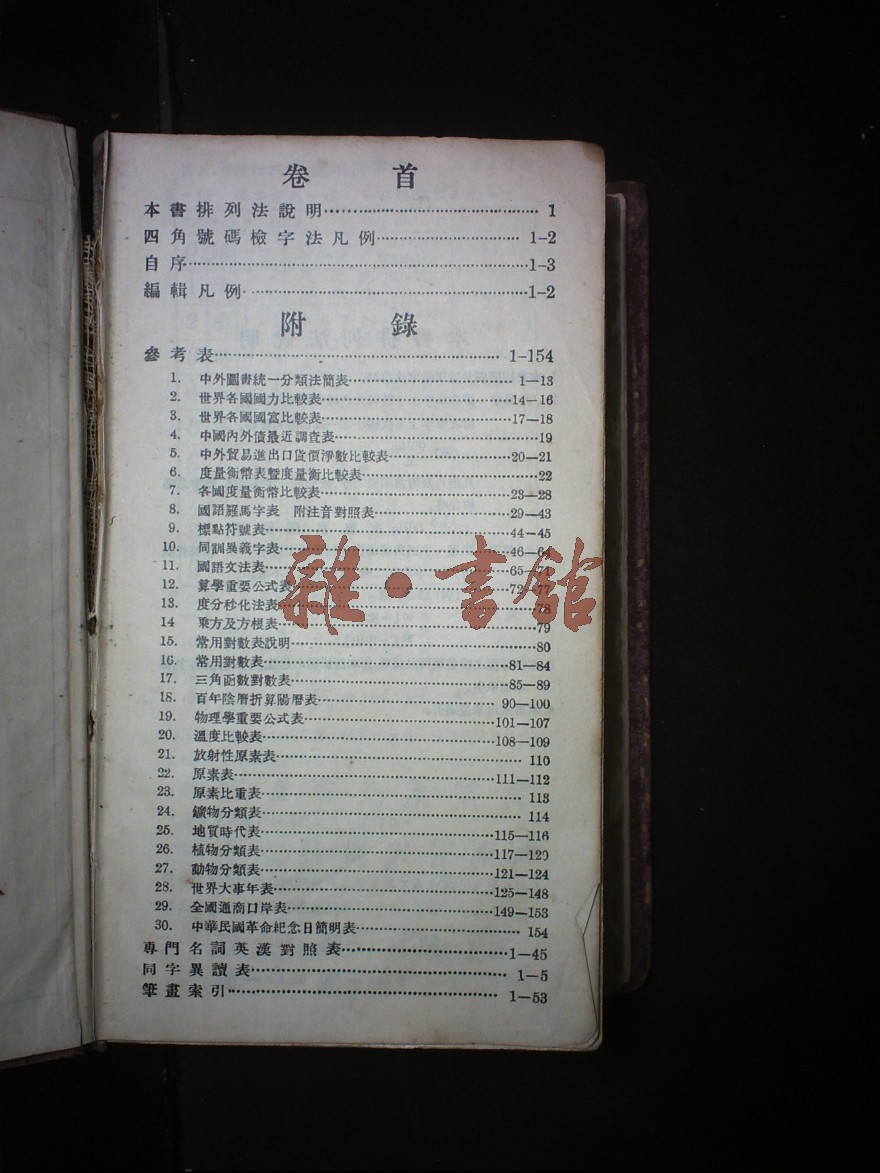 卷首
本書排列法說明 1
四角號碼檢字法凡例 1-2
自序 1-3
編輯凡例 1-2
附錄
參考表 1-154
1. 中外圖書統一分類法簡表 1—13
2. 世界各國國力比較表 14—16
3. 世界各國國富比較表 17—18
4. 中國內外債最近調查表 19
5. 中外貿易進出口貨價淨數比較表 20—21
6. 度量衡幣表暨度量衡比較表 22
7. 各國度量衡幣比較表 23—28
8. 國語羅馬字表 附注音對照表 29—43
9. 標點符號表 44—45
10. 同訓異義字表 46—64
11. 國語文法表 65—71
12. 算學重要公式表 72—77
13. 度分秒化法表 78
14 乘方及方根表 79
15. 常用對數表說明 80
16. 常用對數表 81—84
17. 三角函數對數表 85—89
18. 百年陰曆折算陽曆表 90—100
19. 物理學重要公式表 101—107
20. 溫度比較表 108—109
21. 放射性原素表 110
22. 原素表 111—112
23. 原素比重表 113
24. 鑛物分類表 114
25. 地質時代表 115—116
26. 植物分類表 117—120
27. 動物分類表 121—124
28. 世界大事年表 125—148
29. 全國通商口岸表 149—153
30. 中華民國革命紀念日簡明表 154
專門名詞英漢對照表 1—45
同字異讀表 1—5
筆畫索引 1—53
雜·書館